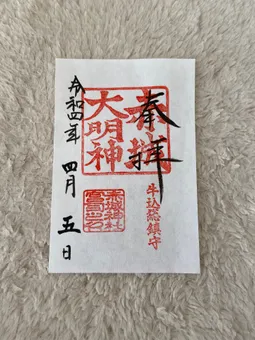 奉拝
赤城
大明神
牛込総鎮守
令和四年
四月
五日